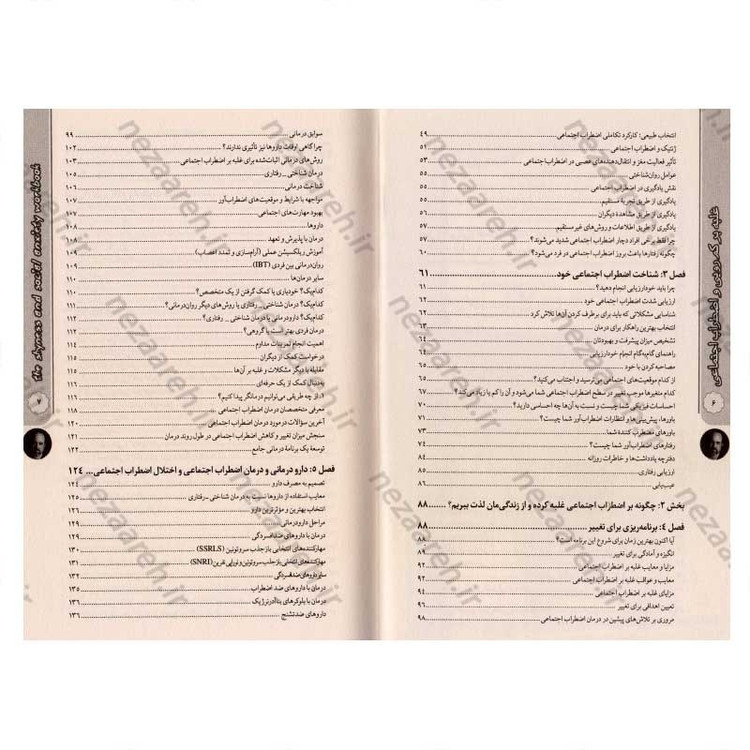 غلبه بر کم رویی و اضطراب اجتماعی
۶
انتخاب طبیعی: کارکرد تکاملی اضطراب اجتماعی ۴۹
ژنتیک و اضطراب اجتماعی ۵۱
تأثیر فعالیت مغز و انتقال‌دهنده‌های عصبی در اضطراب اجتماعی ۵۳
عوامل روان‌شناختی ۵۵
نقش یادگیری در اضطراب اجتماعی ۵۵
یادگیری از طریق تجربه مستقیم
یادگیری از طریق مشاهده دیگران
یادگیری از طریق اطلاعات و روش‌های غیر مستقیم
چرا فقط برخی افراد دچار اضطراب اجتماعی شدید می‌شوند؟
چگونه رفتارها باعث بروز اضطراب اجتماعی در فرد می‌شود؟
فصل ۳: شناخت اضطراب اجتماعی خود ۶۱
چرا باید خودارزیابی انجام دهید؟
ارزیابی شدت اضطراب اجتماعی خود
شناسایی مشکلاتی که باید برای برطرف کردن آن‌ها تلاش کرد
انتخاب بهترین راهکار برای درمان
تشخیص میزان پیشرفت و بهبودتان
راهنمای گام‌به‌گام انجام خودارزیابی
مصاحبه کردن با خود
از کدام موقعیت‌های اجتماعی می‌ترسید و اجتناب می‌کنید؟
کدام متغیرها موجب تغییر در سطح اضطراب اجتماعی شما می‌شود و آن را کم یا زیاد می‌کند؟ ۶۷
احساسات فیزیکی شما چیست و نسبت به آن‌ها چه احساسی دارید؟ ۷۰
باورها، پیش‌بینی‌ها و انتظارات اضطراب‌آور شما چیست؟ ۷۱
باورهای مضطرب کننده شما ۷۳
رفتارهای اضطراب‌آور شما چیست؟ ۷۴
دفترچه یادداشت‌ها و خاطرات روزانه ۸۴
ارزیابی رفتاری ۸۵
عیب‌یابی ۸۶
بخش ۲: چگونه بر اضطراب اجتماعی غلبه کرده و از زندگی‌مان لذت ببریم؟ ۸۸
فصل ۴: برنامه‌ریزی برای تغییر ۸۸
آیا اکنون بهترین زمان برای شروع این برنامه است؟
انگیزه و آمادگی برای تغییر ۸۹
مزایا و معایب غلبه بر اضطراب اجتماعی ۹۲
معایب و عواقب غلبه بر اضطراب اجتماعی ۹۲
مزایای غلبه بر اضطراب اجتماعی ۹۴
تعیین اهدافی برای تغییر ۹۶
مروری بر تلاش‌های پیشین در درمان اضطراب اجتماعی ۹۸
the shyness and social anxiety workbook
۷
سوابق درمانی ۹۹
چرا گاهی اوقات داروها نیز تأثیری ندارند؟ ۱۰۲
روش‌های درمانی اثبات‌شده برای غلبه بر اضطراب اجتماعی ۱۰۳
درمان شناختی _ رفتاری ۱۰۵
شناخت درمانی ۱۰۶
مواجهه با شرایط و موقعیت‌های اضطراب‌آور ۱۰۷
بهبود مهارت‌های اجتماعی ۱۰۷
داروها ۱۰۸
درمان با پذیرش و تعهد ۱۰۸
آموزش ریلکسیشن عملی (آرام‌سازی و تمدد اعصاب) ۱۰۹
روان‌درمانی بین فردی (IBT)
سایر درمان‌ها
کدام‌یک؟ خودیاری یا کمک گرفتن از یک متخصص؟
کدام‌یک؟ درمان شناختی _ رفتاری یا روش‌های دیگر روان‌درمانی؟
کدام‌یک؟ دارودرمانی یا درمان شناختی _ رفتاری؟
درمان فردی بهتر است یا گروهی؟
اهمیت انجام تمرینات مداوم
درخواست کمک از دیگران ۱۱۵
مقابله با دیگر مشکلات و غلبه بر آن‌ها ۱۱۵
به‌دنبال کمک از یک حرفه‌ای
از چه طریقی می‌توانیم درمانگر پیدا کنیم؟
معرفی متخصصان درمان اضطراب اجتماعی
آخرین سؤالات در مورد درمان اضطراب اجتماعی ۱۲۰
سنجش میزان تغییر و کاهش اضطراب اجتماعی در طول روند درمان
توسعه یک برنامه درمانی جامع ۱۲۲
فصل ۵: دارو درمانی و درمان اضطراب اجتماعی و اختلال اضطراب اجتماعی ۱۲۴
تصمیم به مصرف دارو ۱۲۴
معایب استفاده از داروها نسبت به درمان شناختی _ رفتاری
انتخاب بهترین و مؤثرترین دارو
مراحل دارودرمانی
درمان با داروهای ضد افسردگی
مهارکننده‌های انتخابی بازجذب سروتونین (SSRLS) ۱۳۰
مهارکننده‌های انتخابی بازجذب سروتونین و نوراپی نفرین (SNRI) ۱۳۱
سایر داروهای ضدافسردگی
درمان با داروهای ضد اضطراب ۱۳۵
درمان با بلوکرهای بتاآدرنرژیک ۱۳۶
داروهای ضد تشنج ۱۳۶
nezaareh.ir